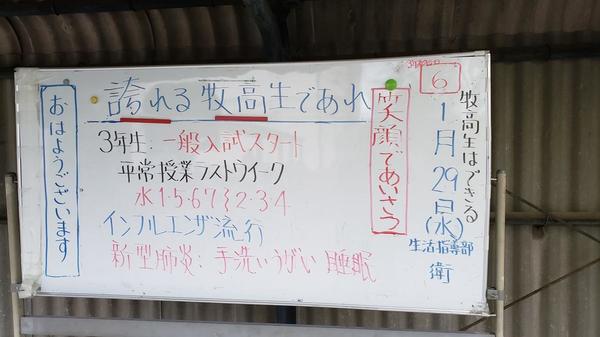 おはようございます
誇れる牧高生であれ
3年生：一般入試スタート
平常授業ラストウイーク
水1・5・6・7ξ2・3・4
インフルエンザ流行
新型肺炎：手洗いうがい 睡眠
笑顔であいさつ
6
1月29日(水)
牧高生はできる
生活指導部
衛